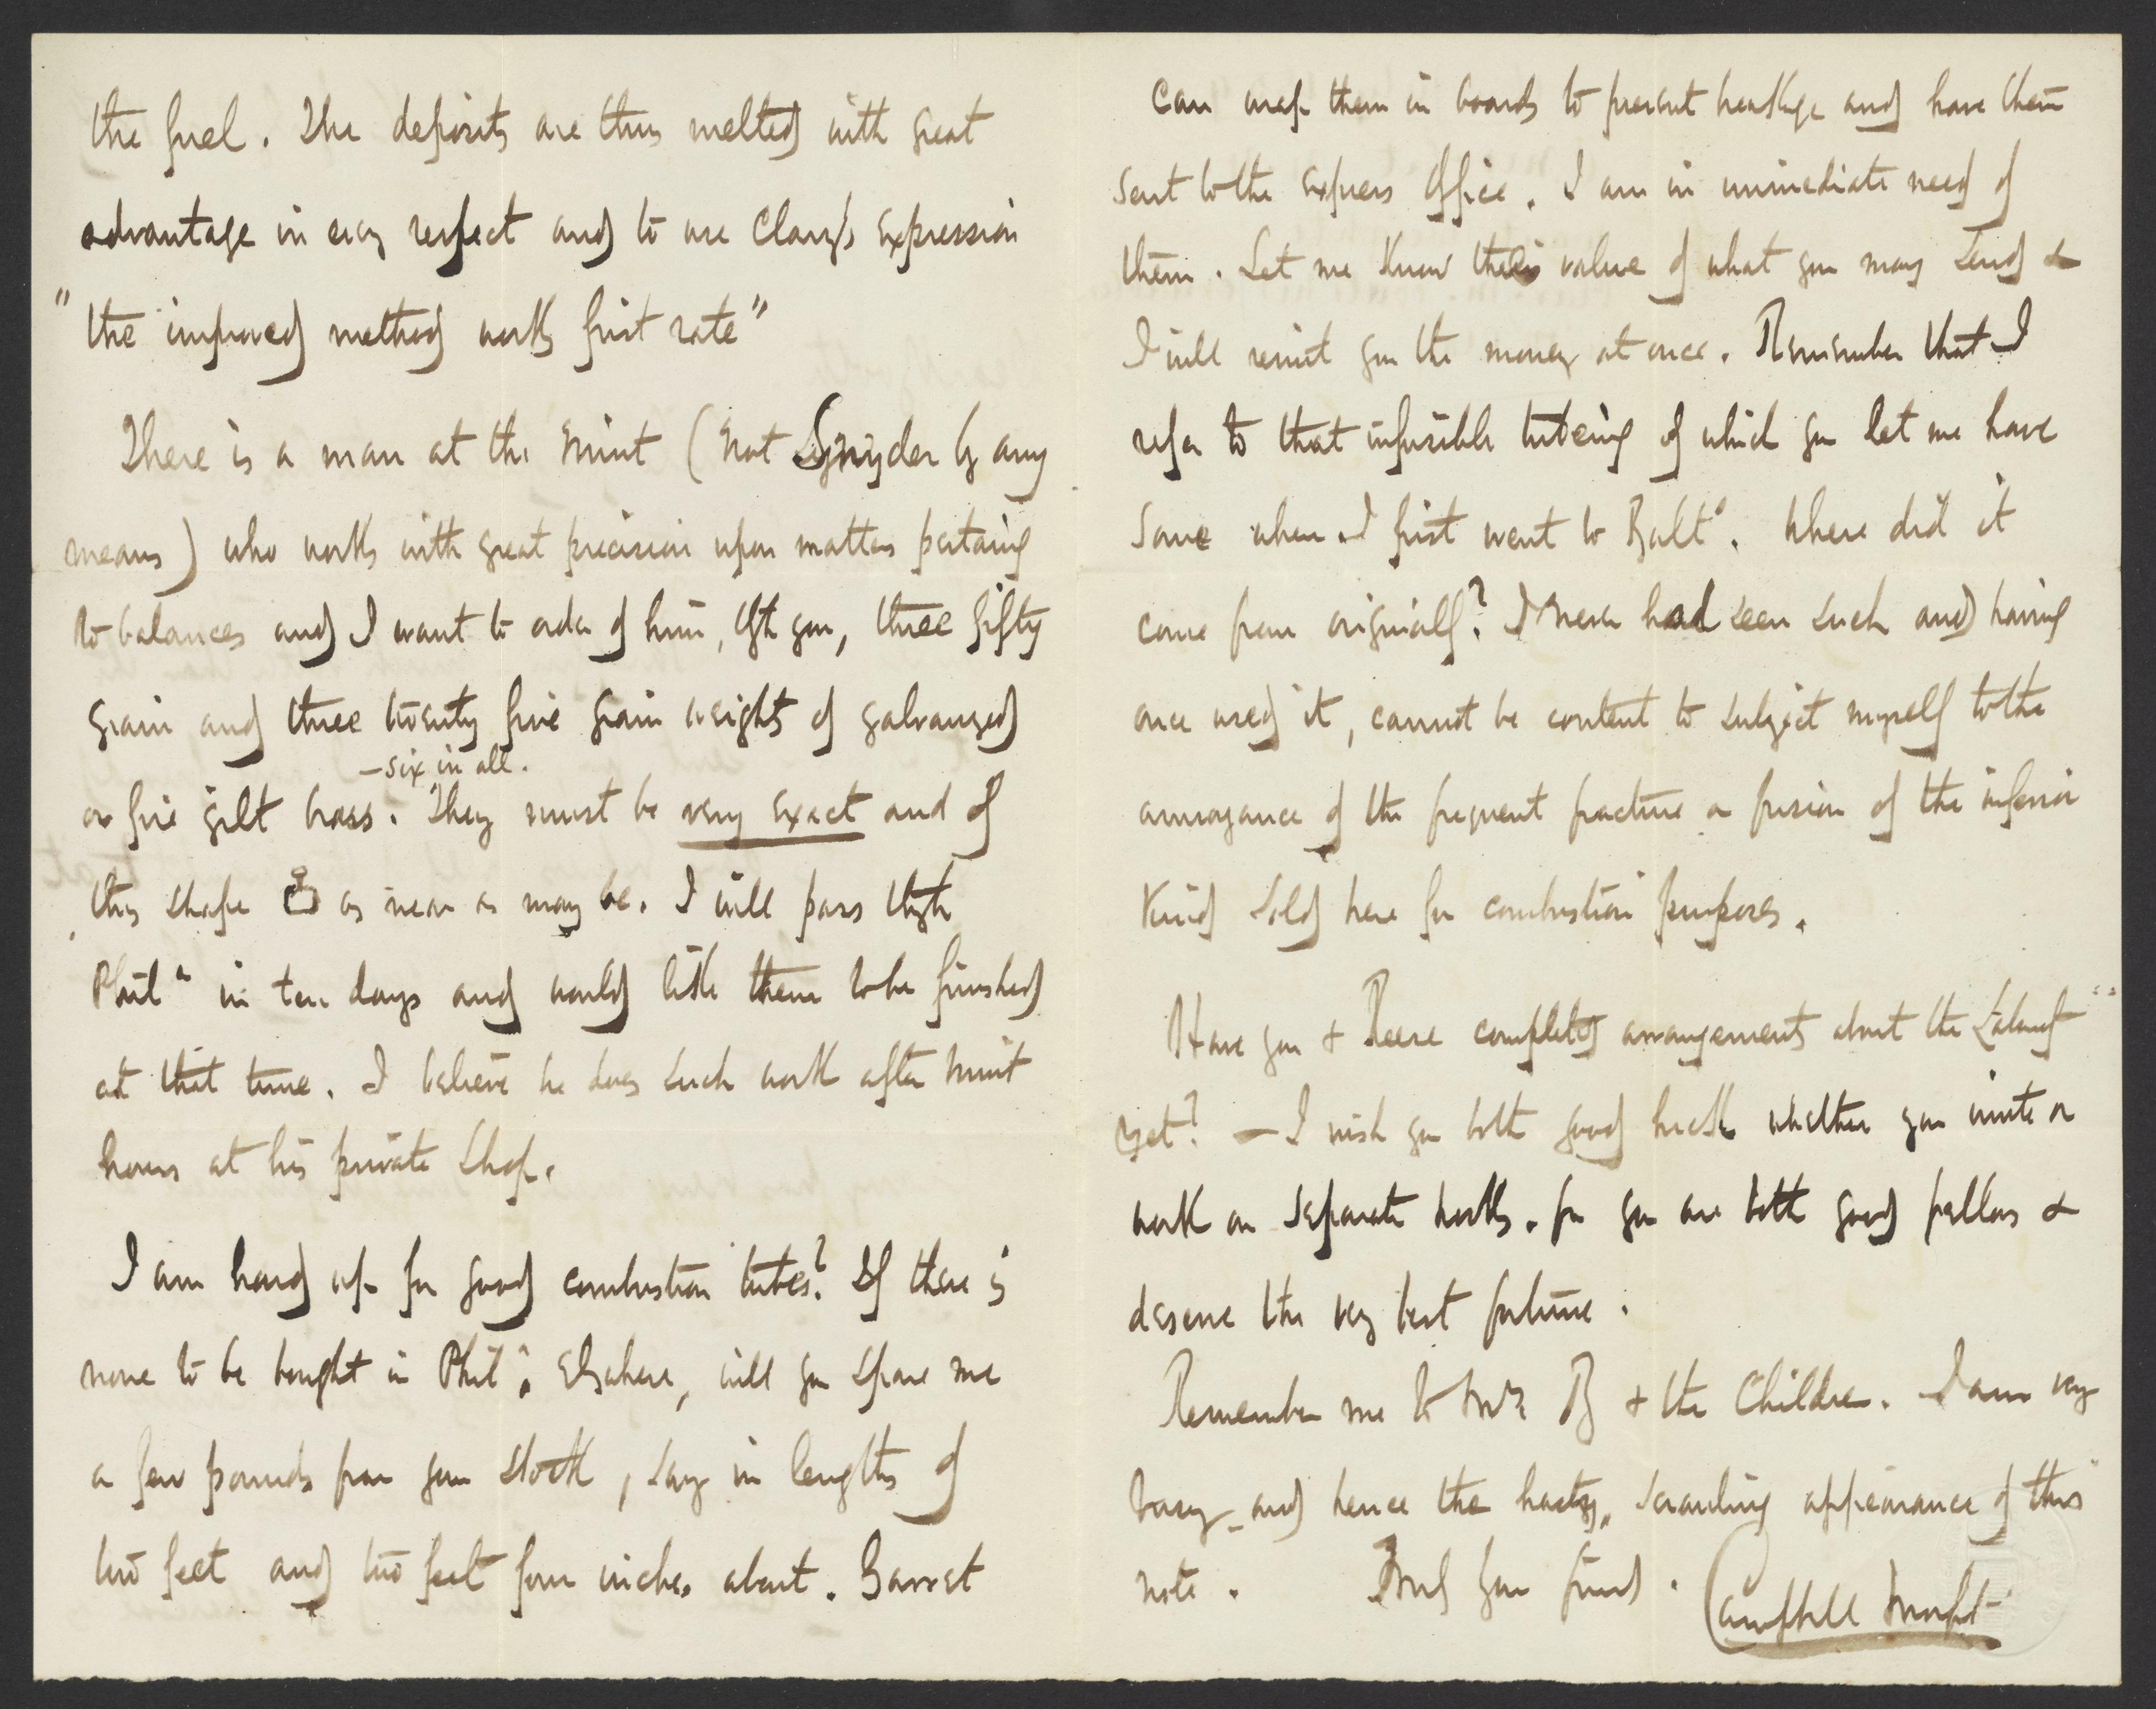 the fuel. The deposits are thus melted with great
advantage in every respect and to use Clary's expression
"the improved method works first rate"
There is a man at the Mint (not Snyder by any
means) who works with great precision upon matters pertaing
to balances and I want to order of him, thro you, three fifty
grain and three twenty five grain weights of galvanized
– six in all.
or fire gilt brass. They must be very exact and of
this shape as near as may be. I will pass thro
Phila in ten days and would like them to be finished
at that time. I believe he does such work after mint
hours at his private shop.
I am hard up for good combustion tubes? If there is
none to be bought in Phila. Elsewhere, will you spare me
a few pounds from your stock, say in lengths of
two feet and two feet four inches about. Garret
can wrap them in boards to prevent breakage and have them
sent to the express office. I am in immediate need of
them. Let me know the value of what you may send &
I will remit you the money at once. Remember that I
refer to that infusible tubeing of which you let me have
some when I first went to Balto. Where did it
come from originally? I never had seen such and having
once used it, cannot be content to subject myself to the
annoyance of the frequent fracture or fusion of the inferior
kind sold here for combustion purposes.
Have you & Reese completed arrangements about the
yet? – I wish you both good luck whether you unite or
work on separate hooks. for you are both good fellows &
deserve the very best fortune.
Remember me to Mrs B & the Children. I am very
busy – and hence the hasty, scrawling appearance of this
note. Truly your friend.
Campbell Morfit